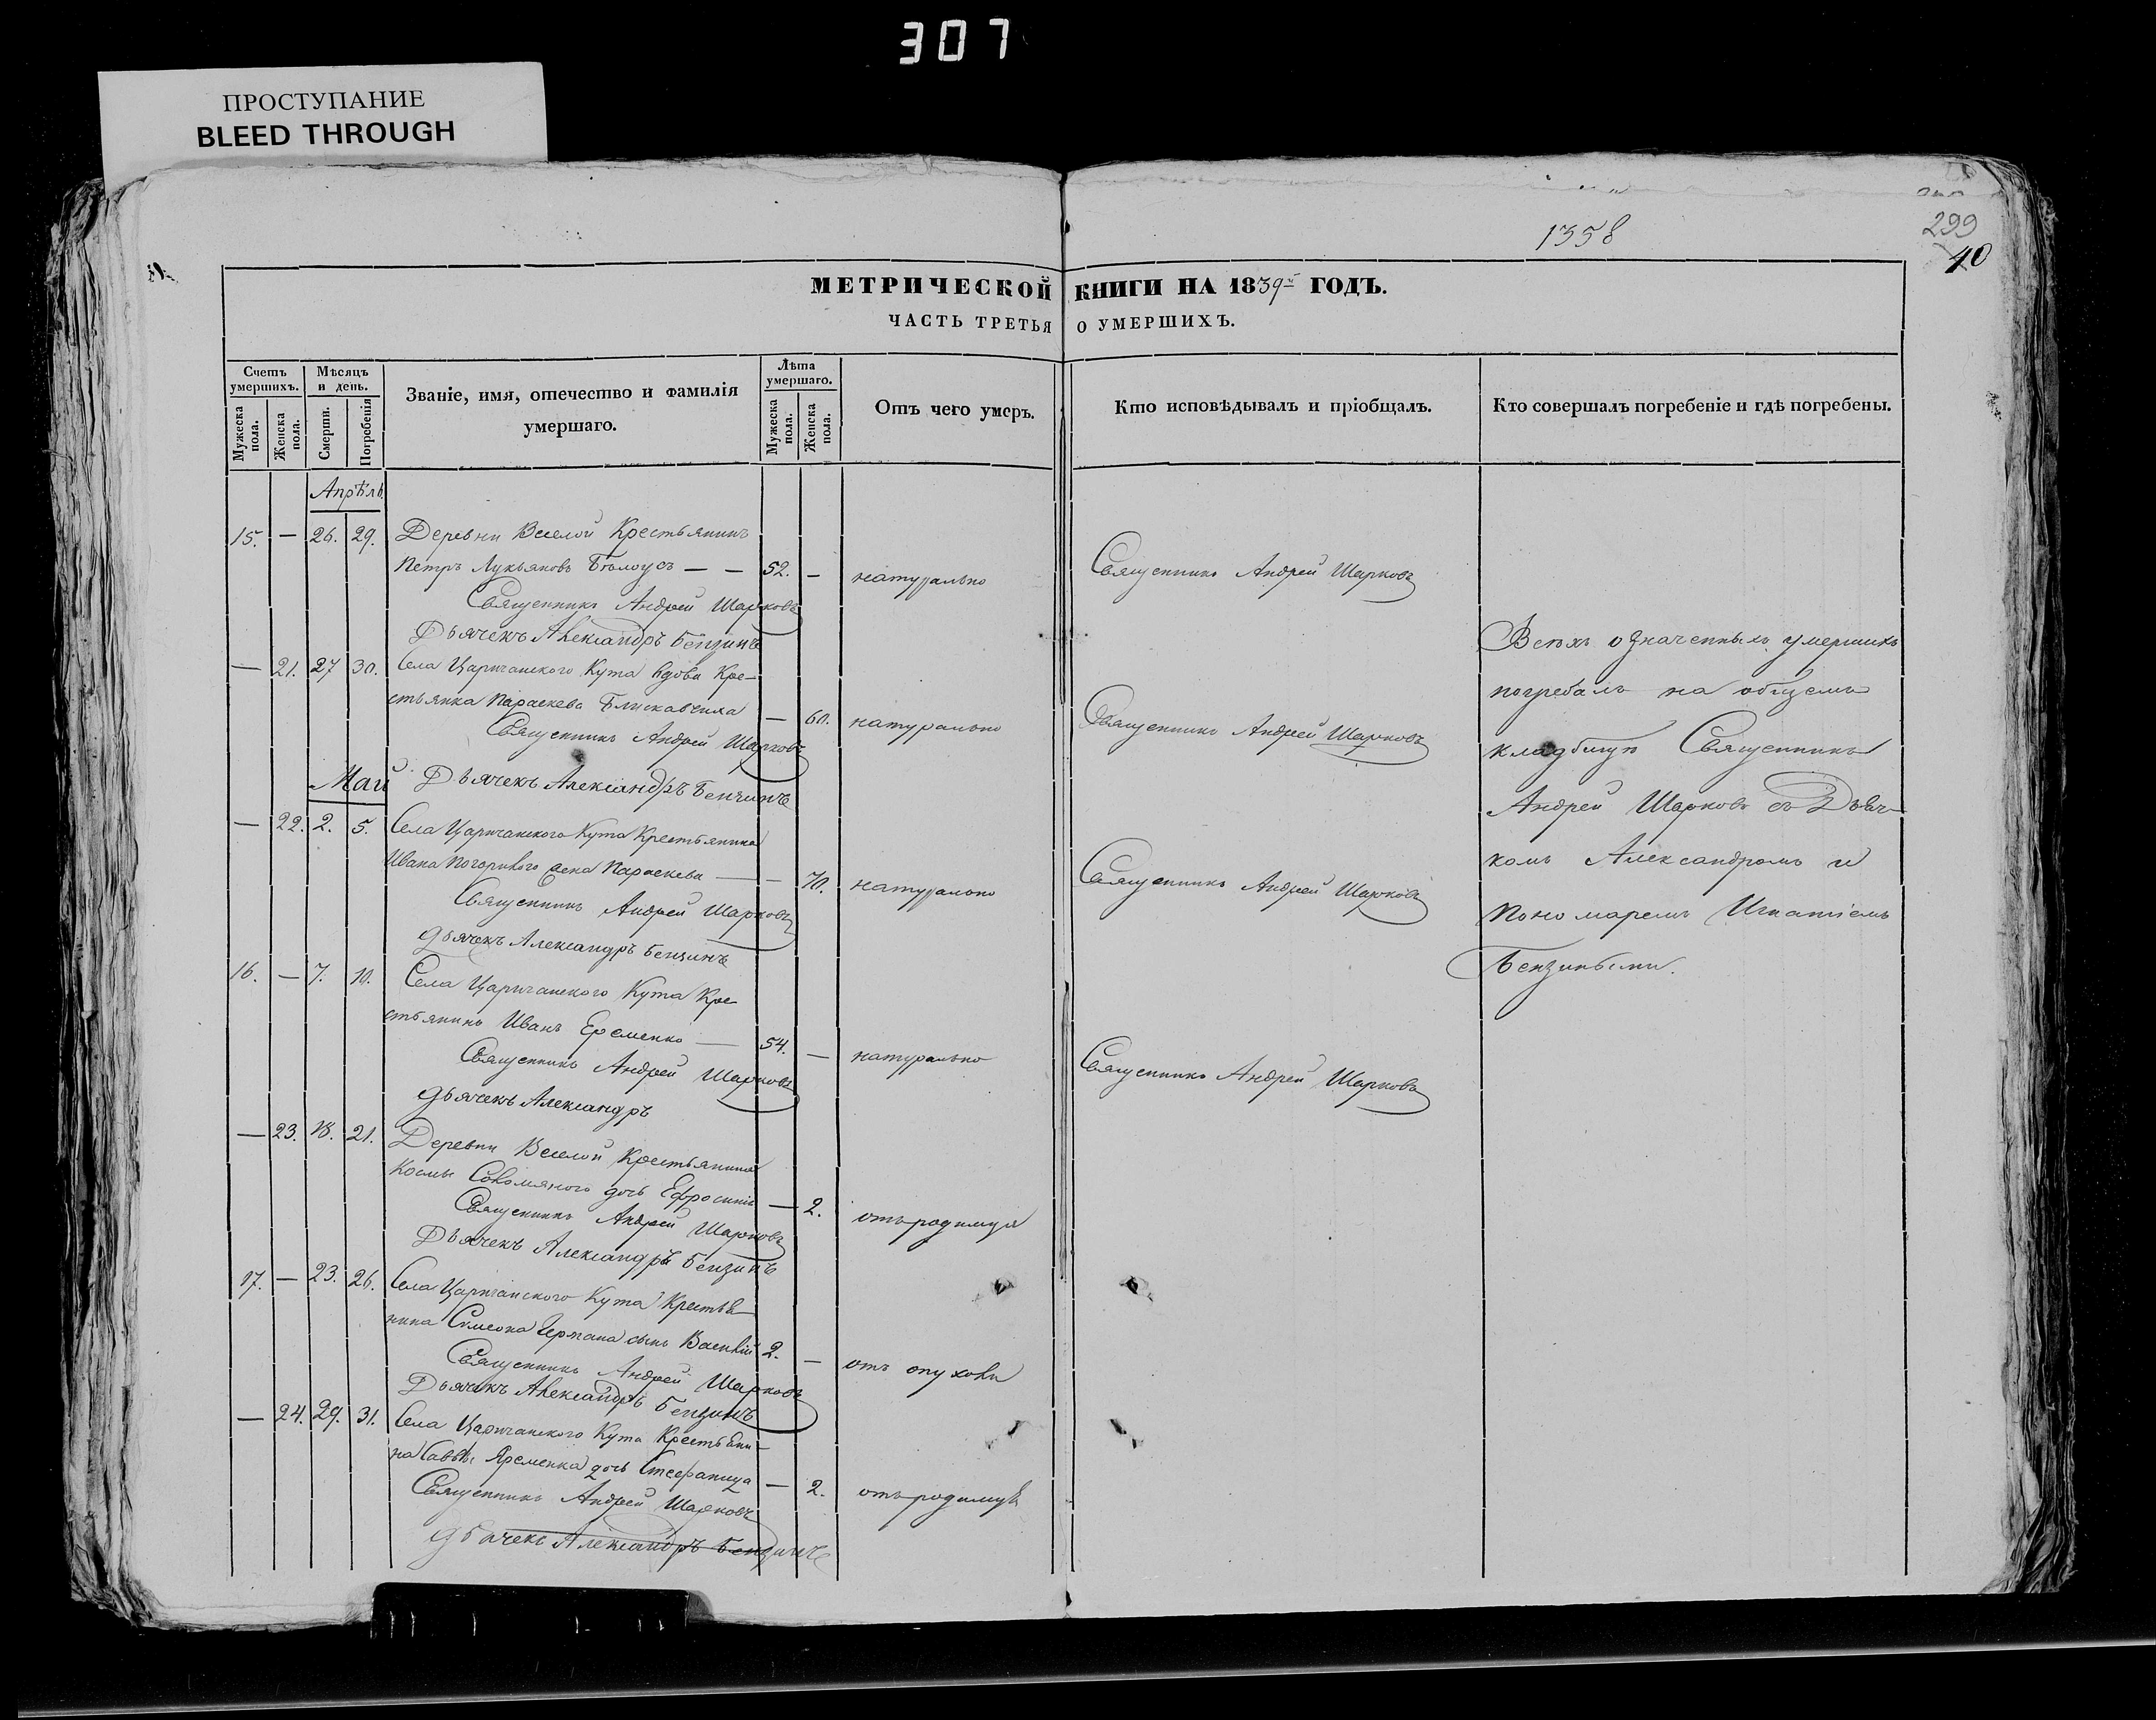 307
ПРОСТУПАНИЕ
BLEED THROUGH
1358
299
40
МЕТРИЧЕСКОЙ КНИГИ НА 1839й ГОДЪ.
ЧАСТЬ ТРЕТЬЯ О УМЕРШИХЪ.
Счетъ умершихъ. Мужеска пола. Женска пола.
Мѣсяцъ и день. Смерти. Погребенія
Званіе, имя, отечество и фамилія умершаго.
Лѣта умершаго. Мужеска пола. Женска пола.
Отъ чего умеръ.
Кто исповѣдывалъ и пріобщалъ.
Кто совершалъ погребеніе и гдѣ погребены.
Апрѣль
15. — 26. 29. Деревни Веселой Крестьянинъ
Петръ Лукьяновъ Бѣлоусъ — — 52. — натурально Священникъ Андрей Шарковъ
Священникъ Андрей Шарковъ
Дьячекъ Александръ Бензинъ
— 21. 27 30. Села Царичанского Кута вдова Кре-
стьянка Параскева Блискавчиха — 60. натурально Священникъ Андрей Шарковъ
Священникъ Андрей Шарковъ
Май Дьячекъ Александръ Бензинъ
— 22. 2. 5. Села Царичанского Кута Крестьянина
Ивана Погорилого жена Параскева — — 70. натурально Священникъ Андрей Шарковъ
Священникъ Андрей Шарковъ
дьячекъ Александръ Бензинъ
16. — 7. 10. Села Царичанского Кута Кре-
стьянинъ Иванъ Еременко — 54. — натурально Священникъ Андрей Шарковъ
Священникъ Андрей Шарковъ
дьячекъ Александръ
— 23. 18. 21. Деревни Веселой Крестьянина
Космы дочь Ефросинія — 2. отъ родимца
Священникъ Андрей Шарковъ
Дьячекъ Александръ Бензинъ
17. — 23. 26. Села Царичанского Кута Крестья-
нина Симеона сынъ Василій 2. — отъ опухоли
Священникъ Андрей Шарковъ
Дьячекъ Александръ Бензинъ
— 24. 29. 31. Села Царичанского Кута Крестьяни-
на Саввы Яременка дочь Стефанида — 2. отъ родимца
Священникъ Андрей Шарковъ
дьячекъ Александръ Бензинъ
Всѣхъ означенныхъ умершихъ
погребалъ на общемъ
кладбищѣ Священникъ
Андрей Шарковъ съ Дьяч-
комъ Александромъ и
Пономаремъ Игнатіемъ
Бензиными.